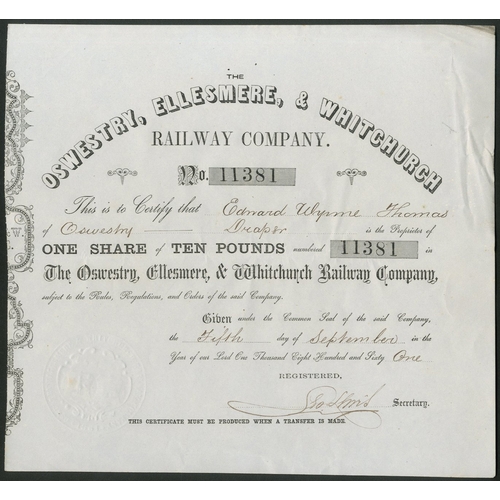 THE
OSWESTRY, ELLESMERE, & WHITCHURCH
RAILWAY COMPANY.
No. 11381
This is to Certify that Edward Wynne Thomas
of Oswestry Draper is the Proprietor of
ONE SHARE of TEN POUNDS numbered 11381 in
The Oswestry, Ellesmere, & Whitchurch Railway Company,
subject to the Rules, Regulations, and Orders of the said Company.
Given under the Common Seal of the said Company,
the Fifth day of September in the
Year of our Lord One Thousand Eight Hundred and Sixty One
REGISTERED,
Geo Lewis Secretary.
THIS CERTIFICATE MUST BE PRODUCED WHEN A TRANSFER IS MADE.
W.